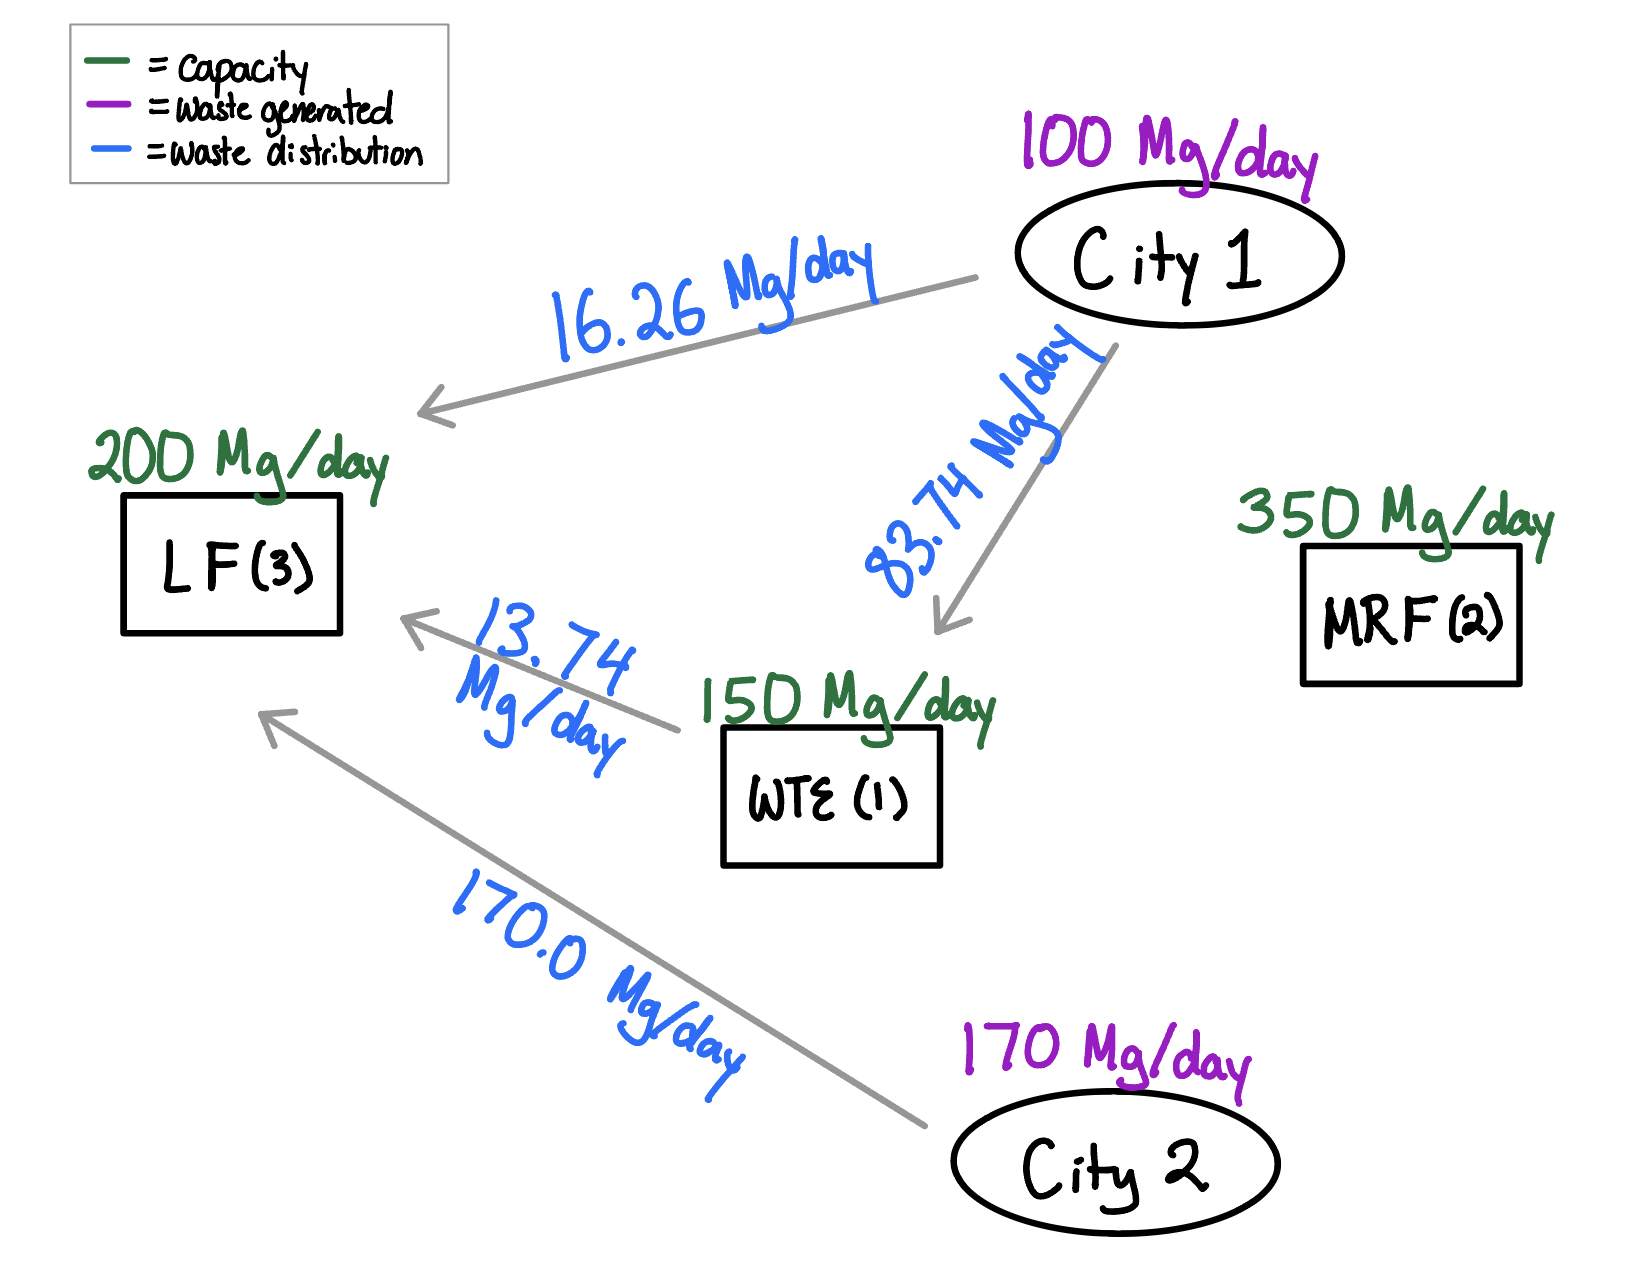 = Capacity
= Waste generated
= Waste distribution
100 Mg/day
City 1
16.26 Mg/day
83.74 Mg/day
200 Mg/day
LF (3)
350 Mg/day
MRF (2)
13.74
Mg/day
150 Mg/day
WTE (1)
170.0 Mg/day
170 Mg/day
City 2